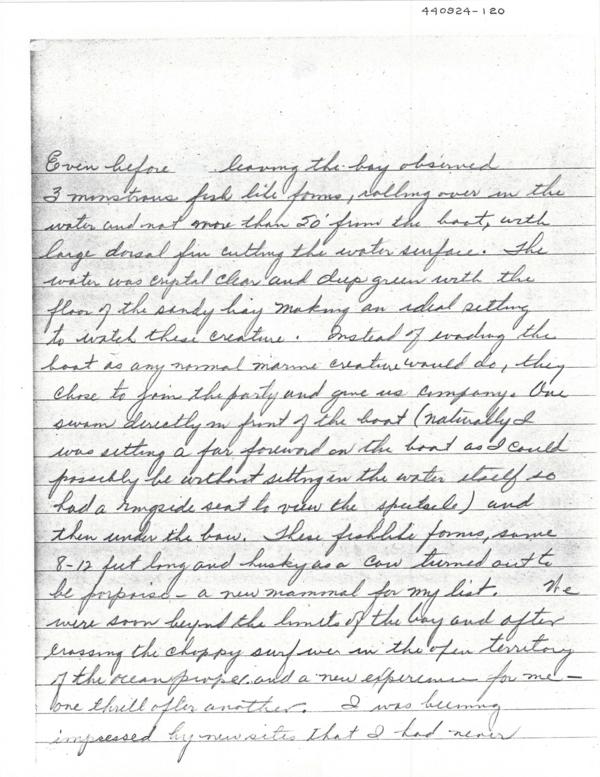 440924-120
Even before leaving the bay observed
3 monstrous fish like forms, rolling over in the
water and not more than 50' from the boat, with
large dorsal fin cutting the water surface. The
water was crystal clear and deep green with the
floor of the sandy bay making an ideal setting
to watch these creature. Instead of evading the
boat as any normal marine creature would do, they
chose to join the party and give us company. One
swam directly in front of the boat (naturally I
was sitting a far foreward on the boat as I could
possibly be without sitting in the water itself so
had a ringside seat to view the spectacle) and
then under the bow. These fishlike forms, some
8-12 feet long and husky as a cow turned out to
be porpoise - a new mammal for my list. We
were soon beyond the limits of the bay and after
crossing the choppy surf wer in the open territory
of the ocean proper and a new experience for me -
one thrill after another. I was
impressed by new sites that I had never